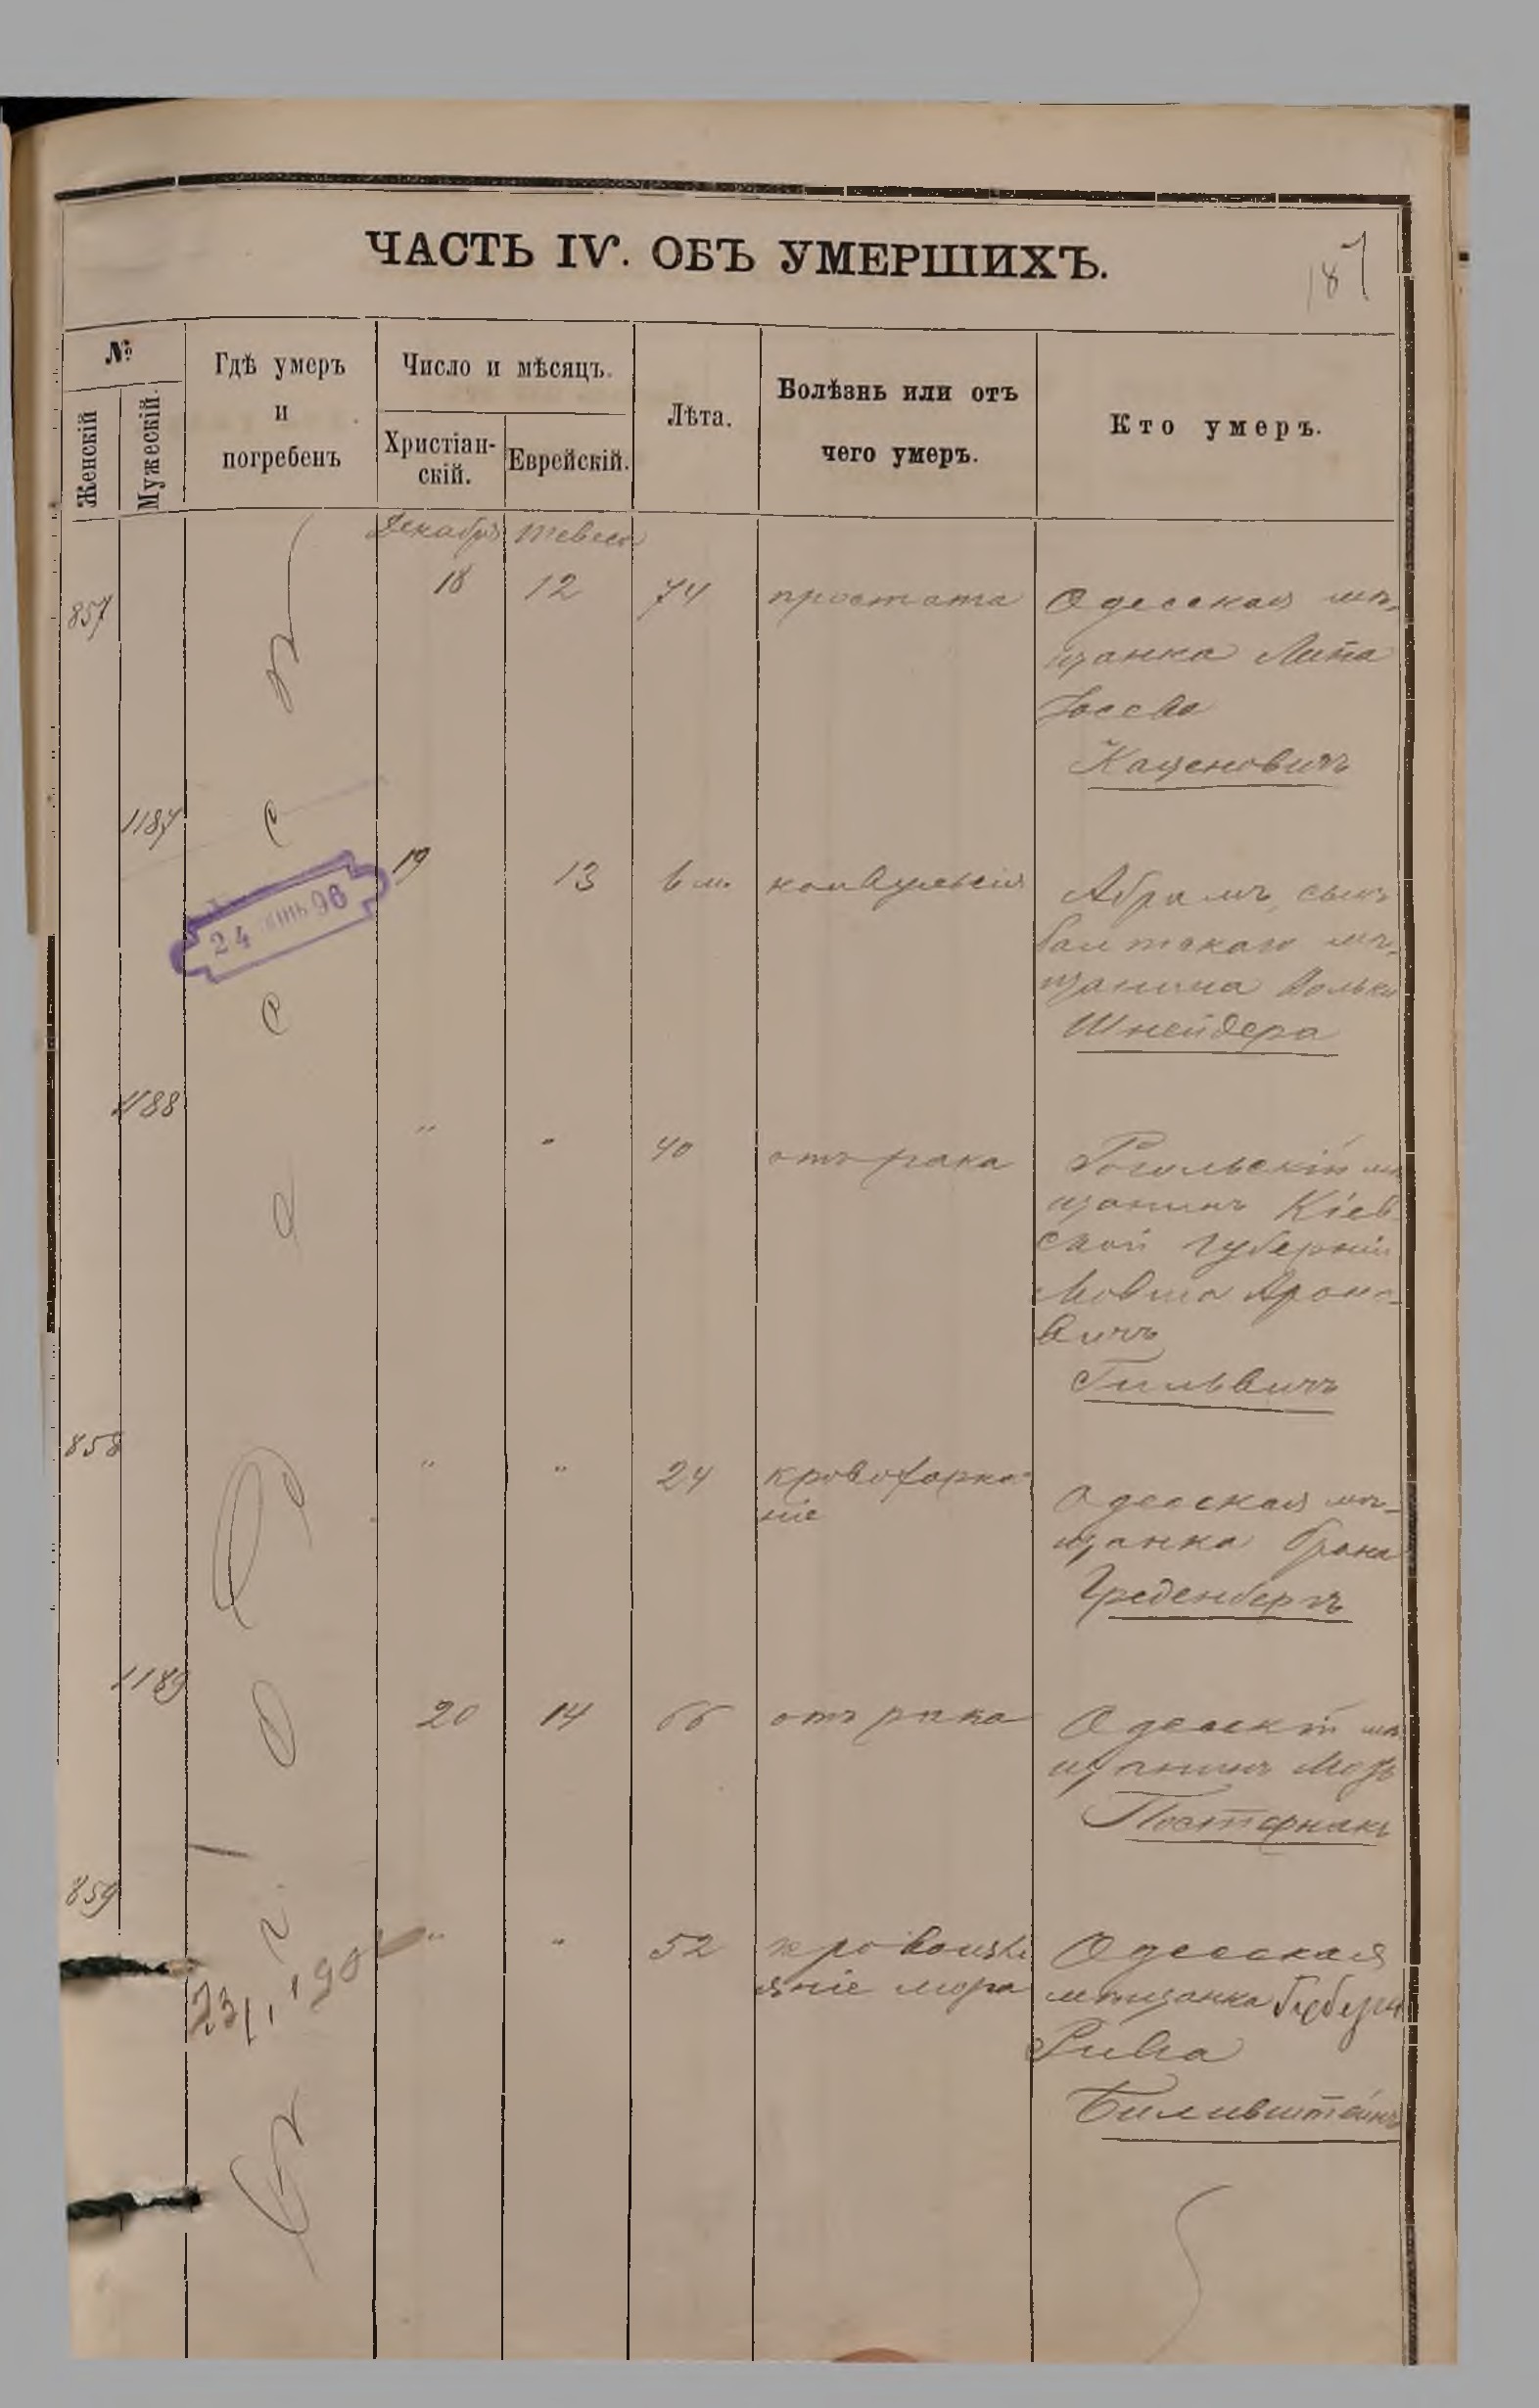 ЧАСТЬ IV. ОБЪ УМЕРШИХЪ.
187
№
Женскій
Мужескій.
Гдѣ умеръ
и
погребенъ
Число и мѣсяцъ.
Христіан-
скій.
Еврейскій.
Лѣта.
Болѣзнь или отъ
чего умеръ.
Кто умеръ.
Декабрь
857
18
12
74
Одесская мѣ-
щанка
Каценовичъ
1187
19
13
6 м.
конвульсія
Абрамъ, сынъ
балтскаго мѣ-
щанина Вольки
Шнейдера
24 96
1188
"
"
40
отъ рака
мѣ
щанинъ Кіев-
ской губерніи
Мовша Ароно-
вичъ
Гильвичъ
858
"
"
24
кровохарка-
ніе
Одесская мѣ-
щанка
Греденбергъ
1189
20
14
66
отъ рака
Одесскій мѣ
щанинъ
Постернакъ
859
"
"
52
кровоизлі
яніе мозга
Одесская
мѣщанка
Рива
въ г. Одессѣ